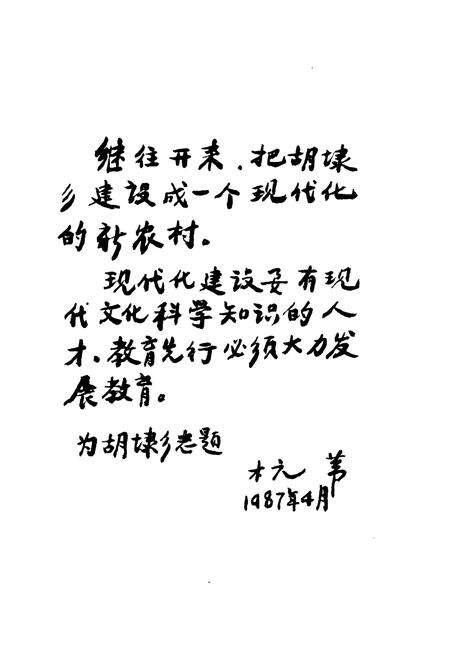 继往开来，把胡埭
乡建设成一个现代化
的新农村。
现代化建设要有现
代文化科学知识的人
才，教育先行必须大力发
展教育。
为胡埭乡志题
杭苇
1987年4月